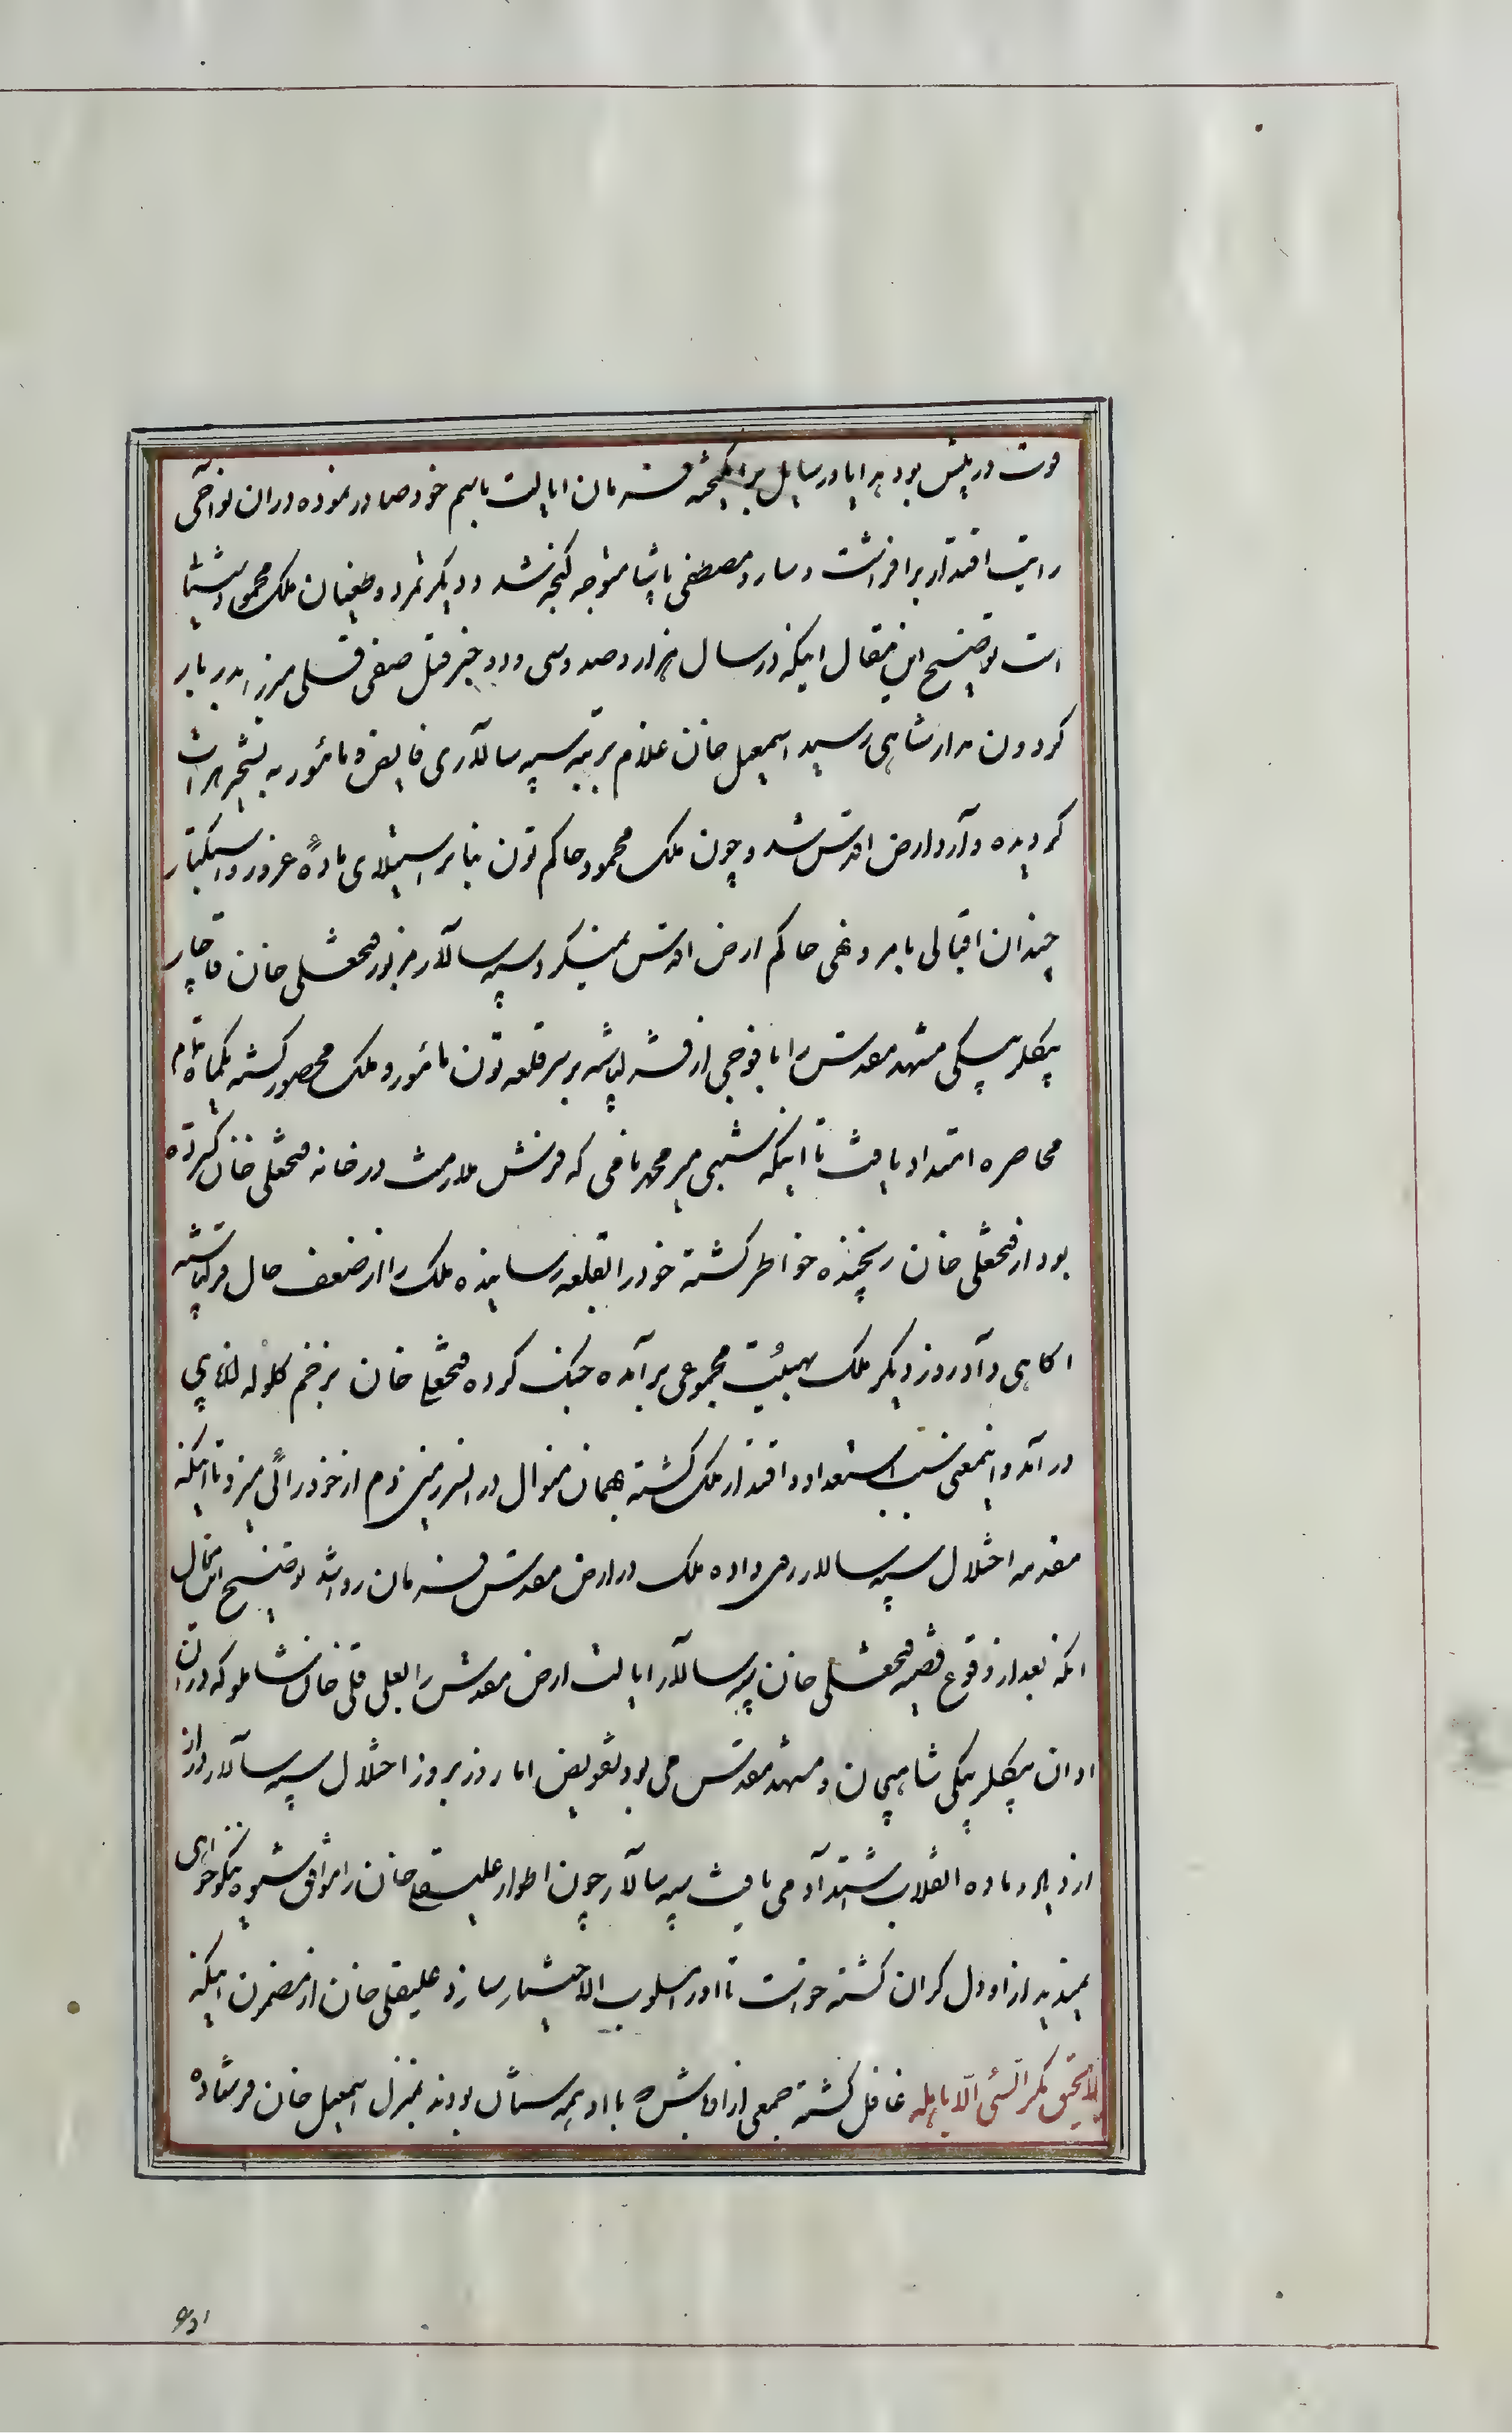 فوت در پیش بود هدایا و رسایل برانگیخته فرمان ایالت باسم خود صادر نموده در ان نواحی
رایت اقتدار برافراشت و سارو مصطفی پاشا متوجه گنجه شد و دیگر تمرد و طغیان ملک محمود سیستانی
است توضیح این مقال اینکه در سال هزار و صد و سی و دو خبر قتل صفی قلی میرزا بدربار
گردون مدار شاهی رسید اسمعیل خان غلام برتبه سپه سالاری فایض و مأمور به تسخیر هرات
گردیده وارد ارض اقدس شد و چون ملک محمود حاکم تون بنابر استیلای ماده غرور و استکبار
چندان اقبالی بامر و نهی حاکم ارض اقدس نمیکرد سپه سالار مزبور فتحعلی خان قاجار
بیکلربیکی مشهد مقدس را با فوجی از قزلباشیه بر سر قلعه تون مأمور و ملک محصور گشته یکماه تمام
محاصره امتداد یافت تا اینکه شبی میر محمد نامی که فراش ملازمت در خانه فتحعلی خان گسترده
بود از فتحعلی خان رنجیده خواطر گشته خود را بقلعه رسانیده ملک را از ضعف حال قزلباشیه
اکاهی داد روز دیگر ملک بهیئت مجموعی برآمده جنگ کرده فتحعلی خان بزخم گلوله از پای
درآمد و اینمعنی سبب استعداد و اقتدار ملک گشته بهمان منوال در انسرزمین دم از خودرائی میزد تا اینکه
مقدمه اختلال سپه سالار روی داده ملک در ارض مقدس فرمان روا شد توضیح این مقال
انکه بعد از وقوع قضیه فتحعلی خان سپه سالار ایالت ارض مقدس را بعلی قلی خان شاملو که در ان
اوان بیکلربیکی شاهیجان و مشهد مقدس می بود تفویض اما روز بروز اختلال سپه سالار در از
ازدیاد و ماده انقلاب اشتداد می یافت سپه سالار چون اطوار علیقلی خان را موافق شیوه نیکوخواهی
نمیدید از او دل گران گشته خواست تا او را مسلوب الاختیار سازد علیقلی خان از مضمون اینکه
لا یحیق المکر السیئ الا باهله غافل گشته جمعی از اوباش که با او همدستان بودند بمنزل اسمعیل خان فرستاده